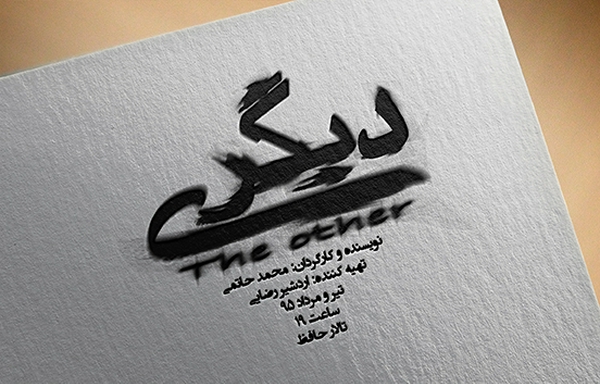 دیگری
The other
نویسنده و کارگردان: محمد حاتمی
تهیه کننده: اردشیر رضایی
تیر و مرداد ۹۵
ساعت ۱۹
تالار حافظ